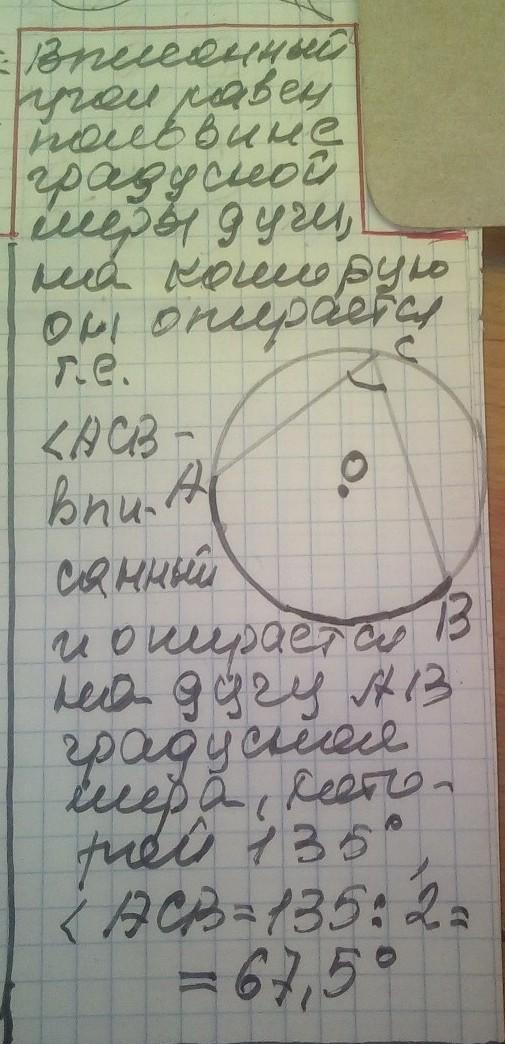 Вписанный
угол равен
половине
градусной
меры дуги,
на которую
он опирается
т.е.
C
<ACB -
A
O
впи-
санный
B
и опирается
на дугу AB
градусная
мера, кото-
рой 135°,
<ACB=135:2=
=67,5°